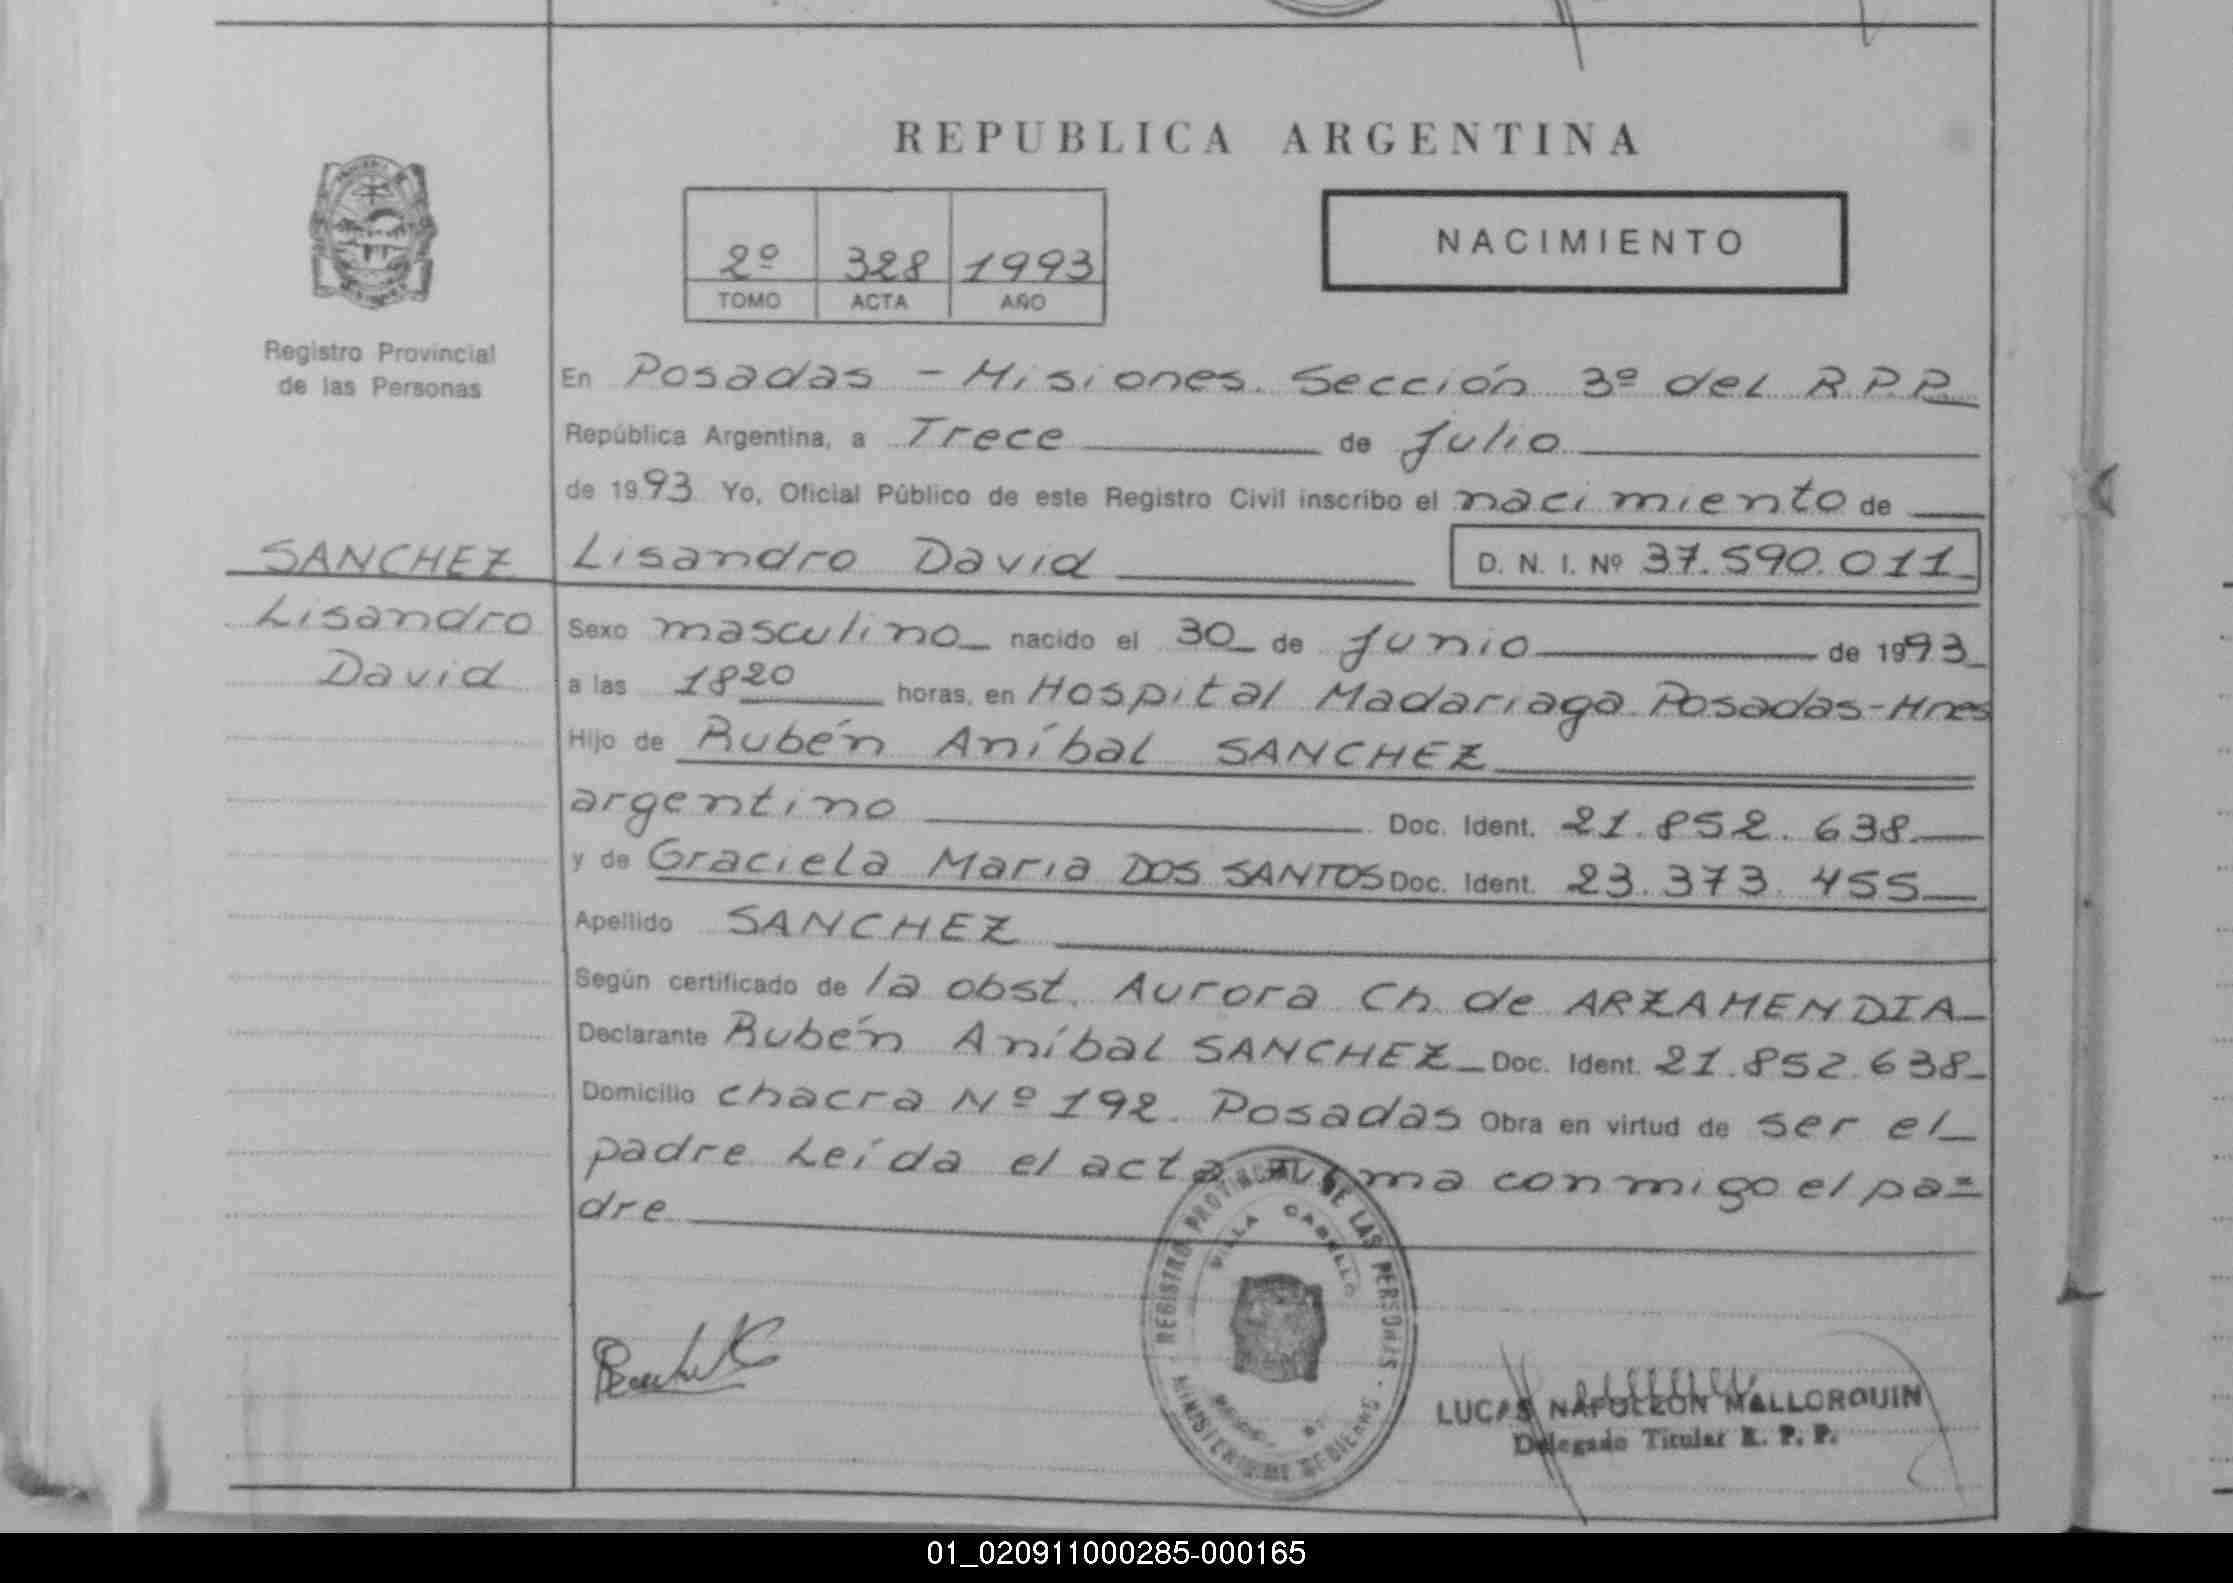 REPUBLICA ARGENTINA
2º 328 1993
TOMO ACTA AÑO
NACIMIENTO
Registro Provincial
de las Personas
SANCHEZ
Lisandro
David
En Posadas - Misiones. Sección 3º del R.P.P.
República Argentina, a Trece de Julio
de 1993 Yo, Oficial Público de este Registro Civil inscribo el nacimiento de
Lisandro David D. N. I. Nº 37.590.011
Sexo masculino nacido el 30 de Junio de 1993
a las 18 20 horas, en Hospital Madariaga Posadas-Mnes
Hijo de Rubén Aníbal SANCHEZ
argentino Doc. Ident. 21.852.638
y de Graciela Maria DOS SANTOS Doc. Ident. 23.373.455
Apellido SANCHEZ
Según certificado de la obst. Aurora Ch. de ARZAMENDIA
Declarante Rubén Aníbal SANCHEZ Doc. Ident. 21.852.638
Domicilio chacra Nº 192. Posadas Obra en virtud de ser el
padre Leída el acta firma conmigo el pa=
dre
REGISTRO PROVINCIAL DE LAS PERSONAS
VILLA CABELLO
MINISTERIO DE GOBIERNO
LUCAS NAPOLEON MALLORQUIN
Delegado Titular R. P. P.
01_020911000285-000165